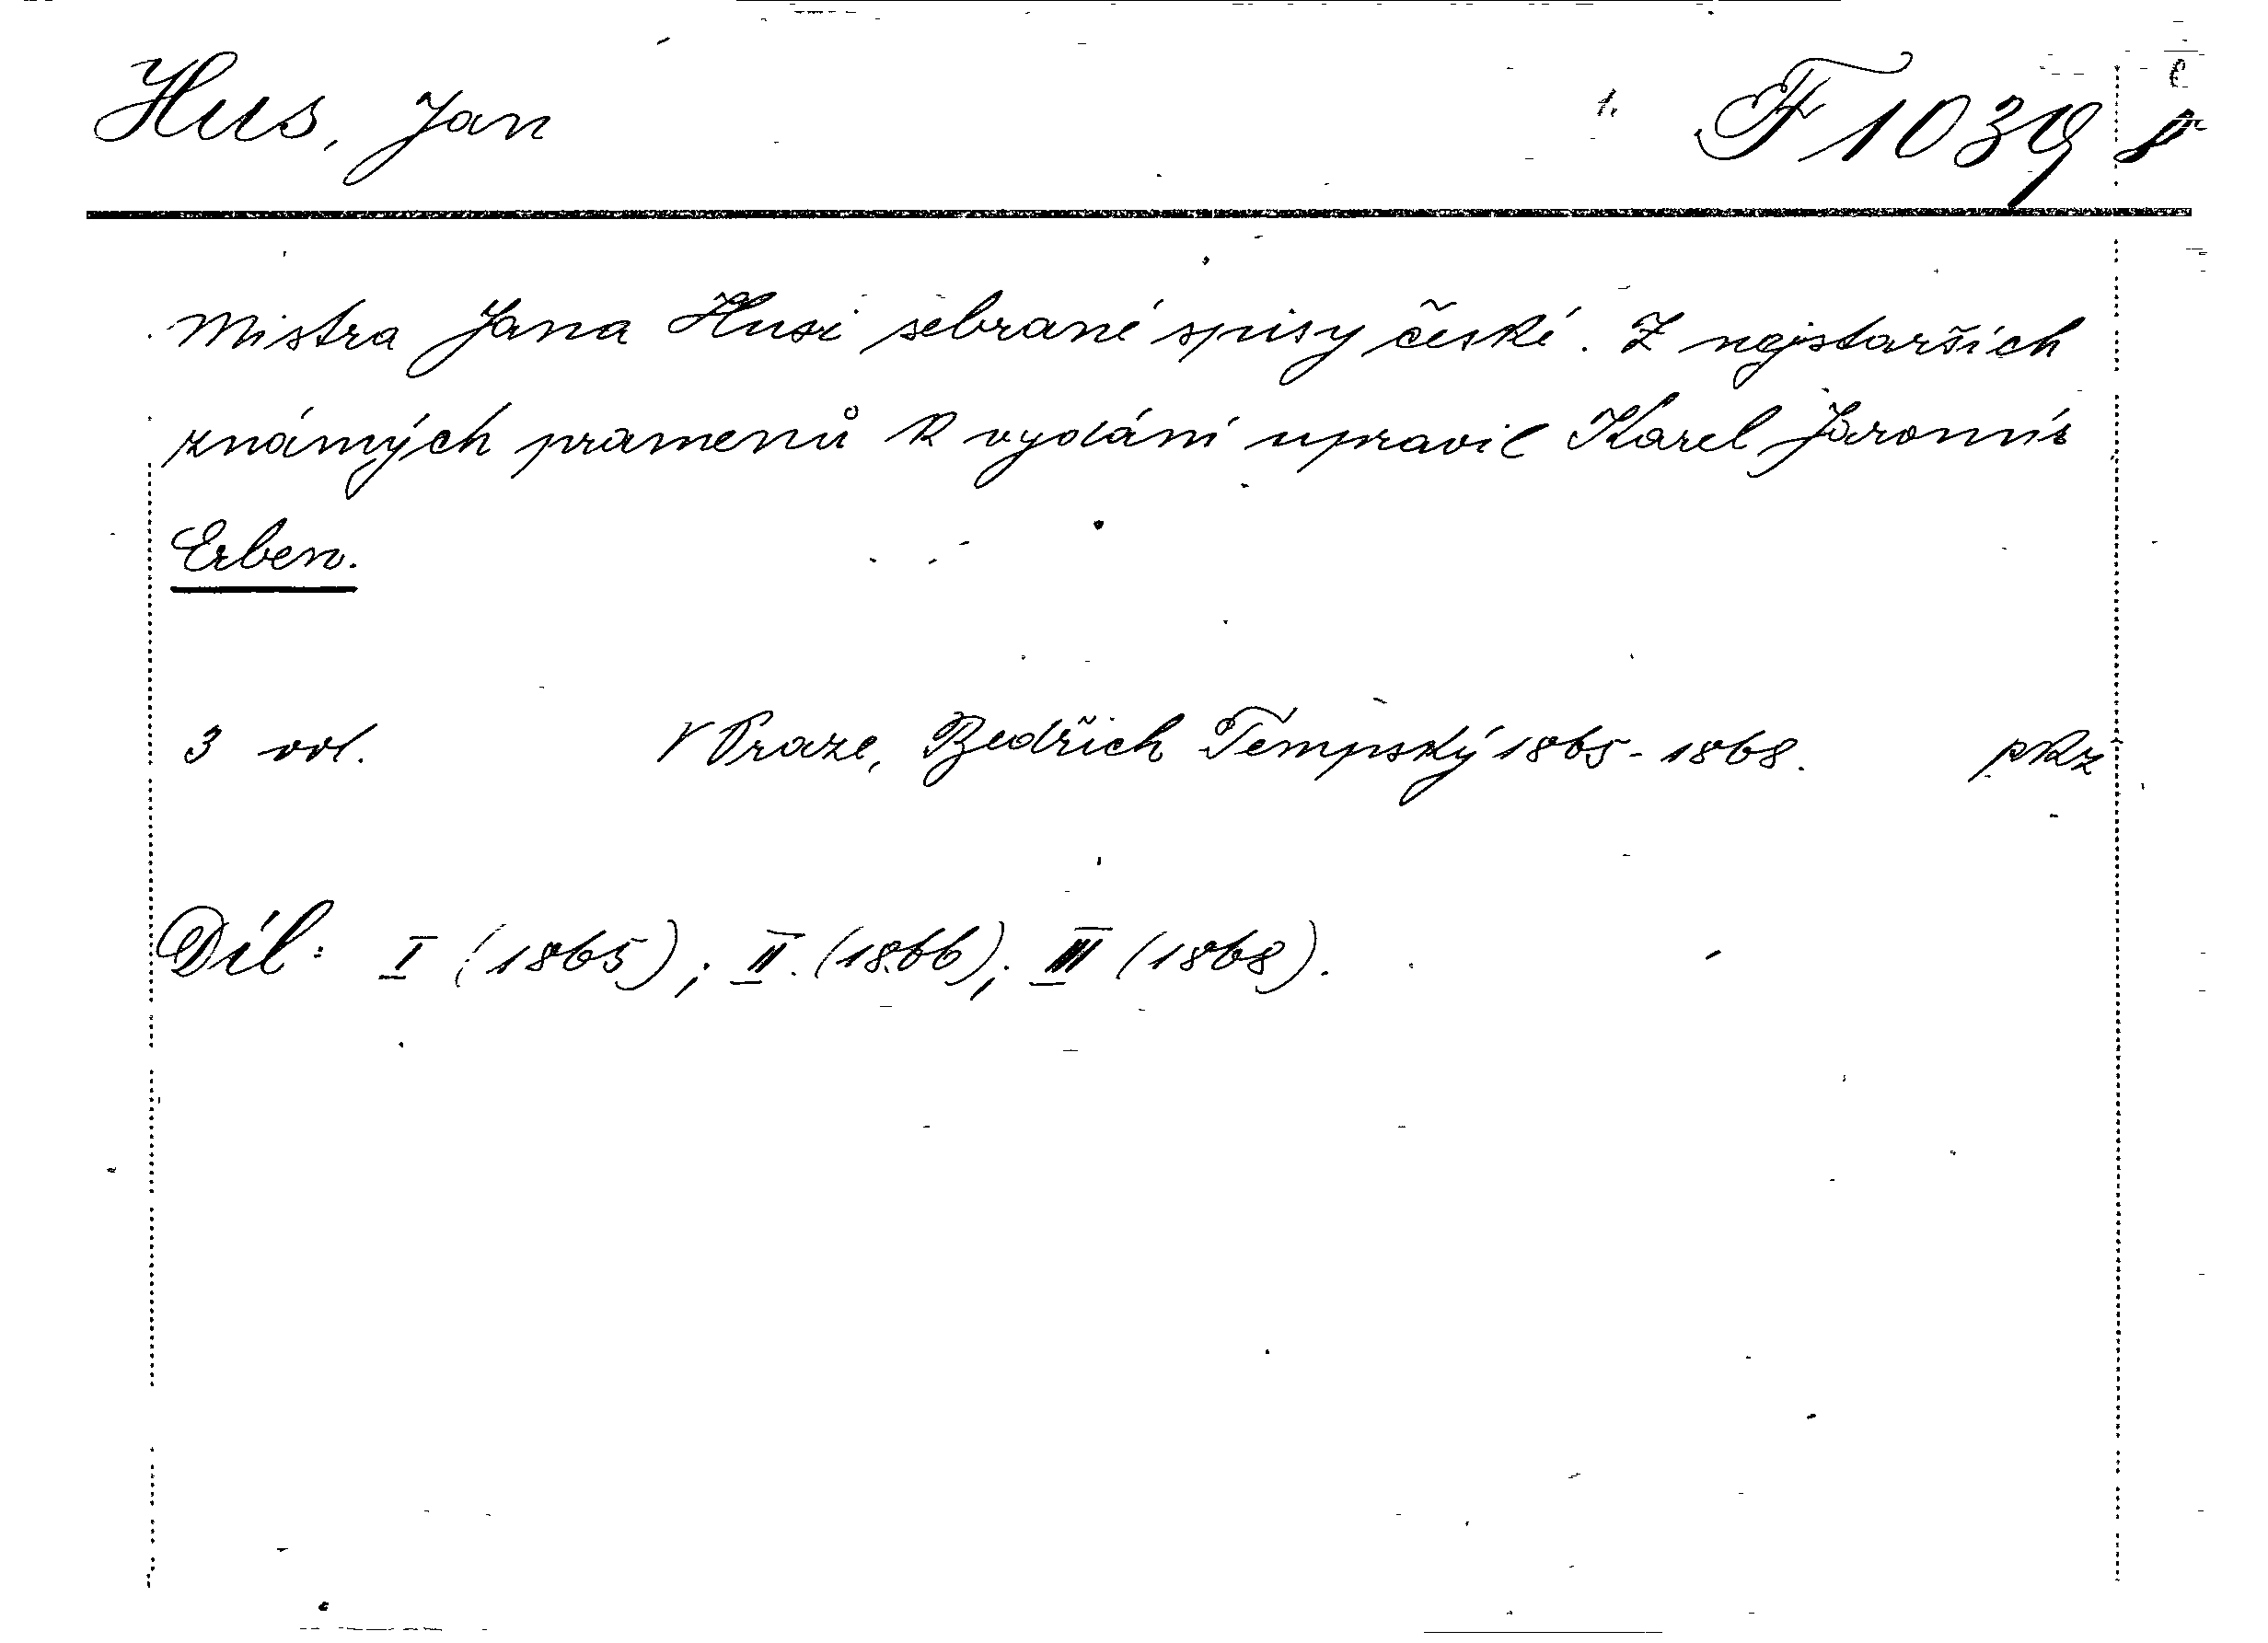 Hus, Jan 1. F 1039
Mistra Jana Husi sebrané spisy české. Z nejstarších
známých pramenů k vydání upravil Karel Jaromír
Erben.
3 vol. V Praze, Bedřich Tempský 1865-1868. pkz
Díl: I (1865); II. (1866); III (1868).